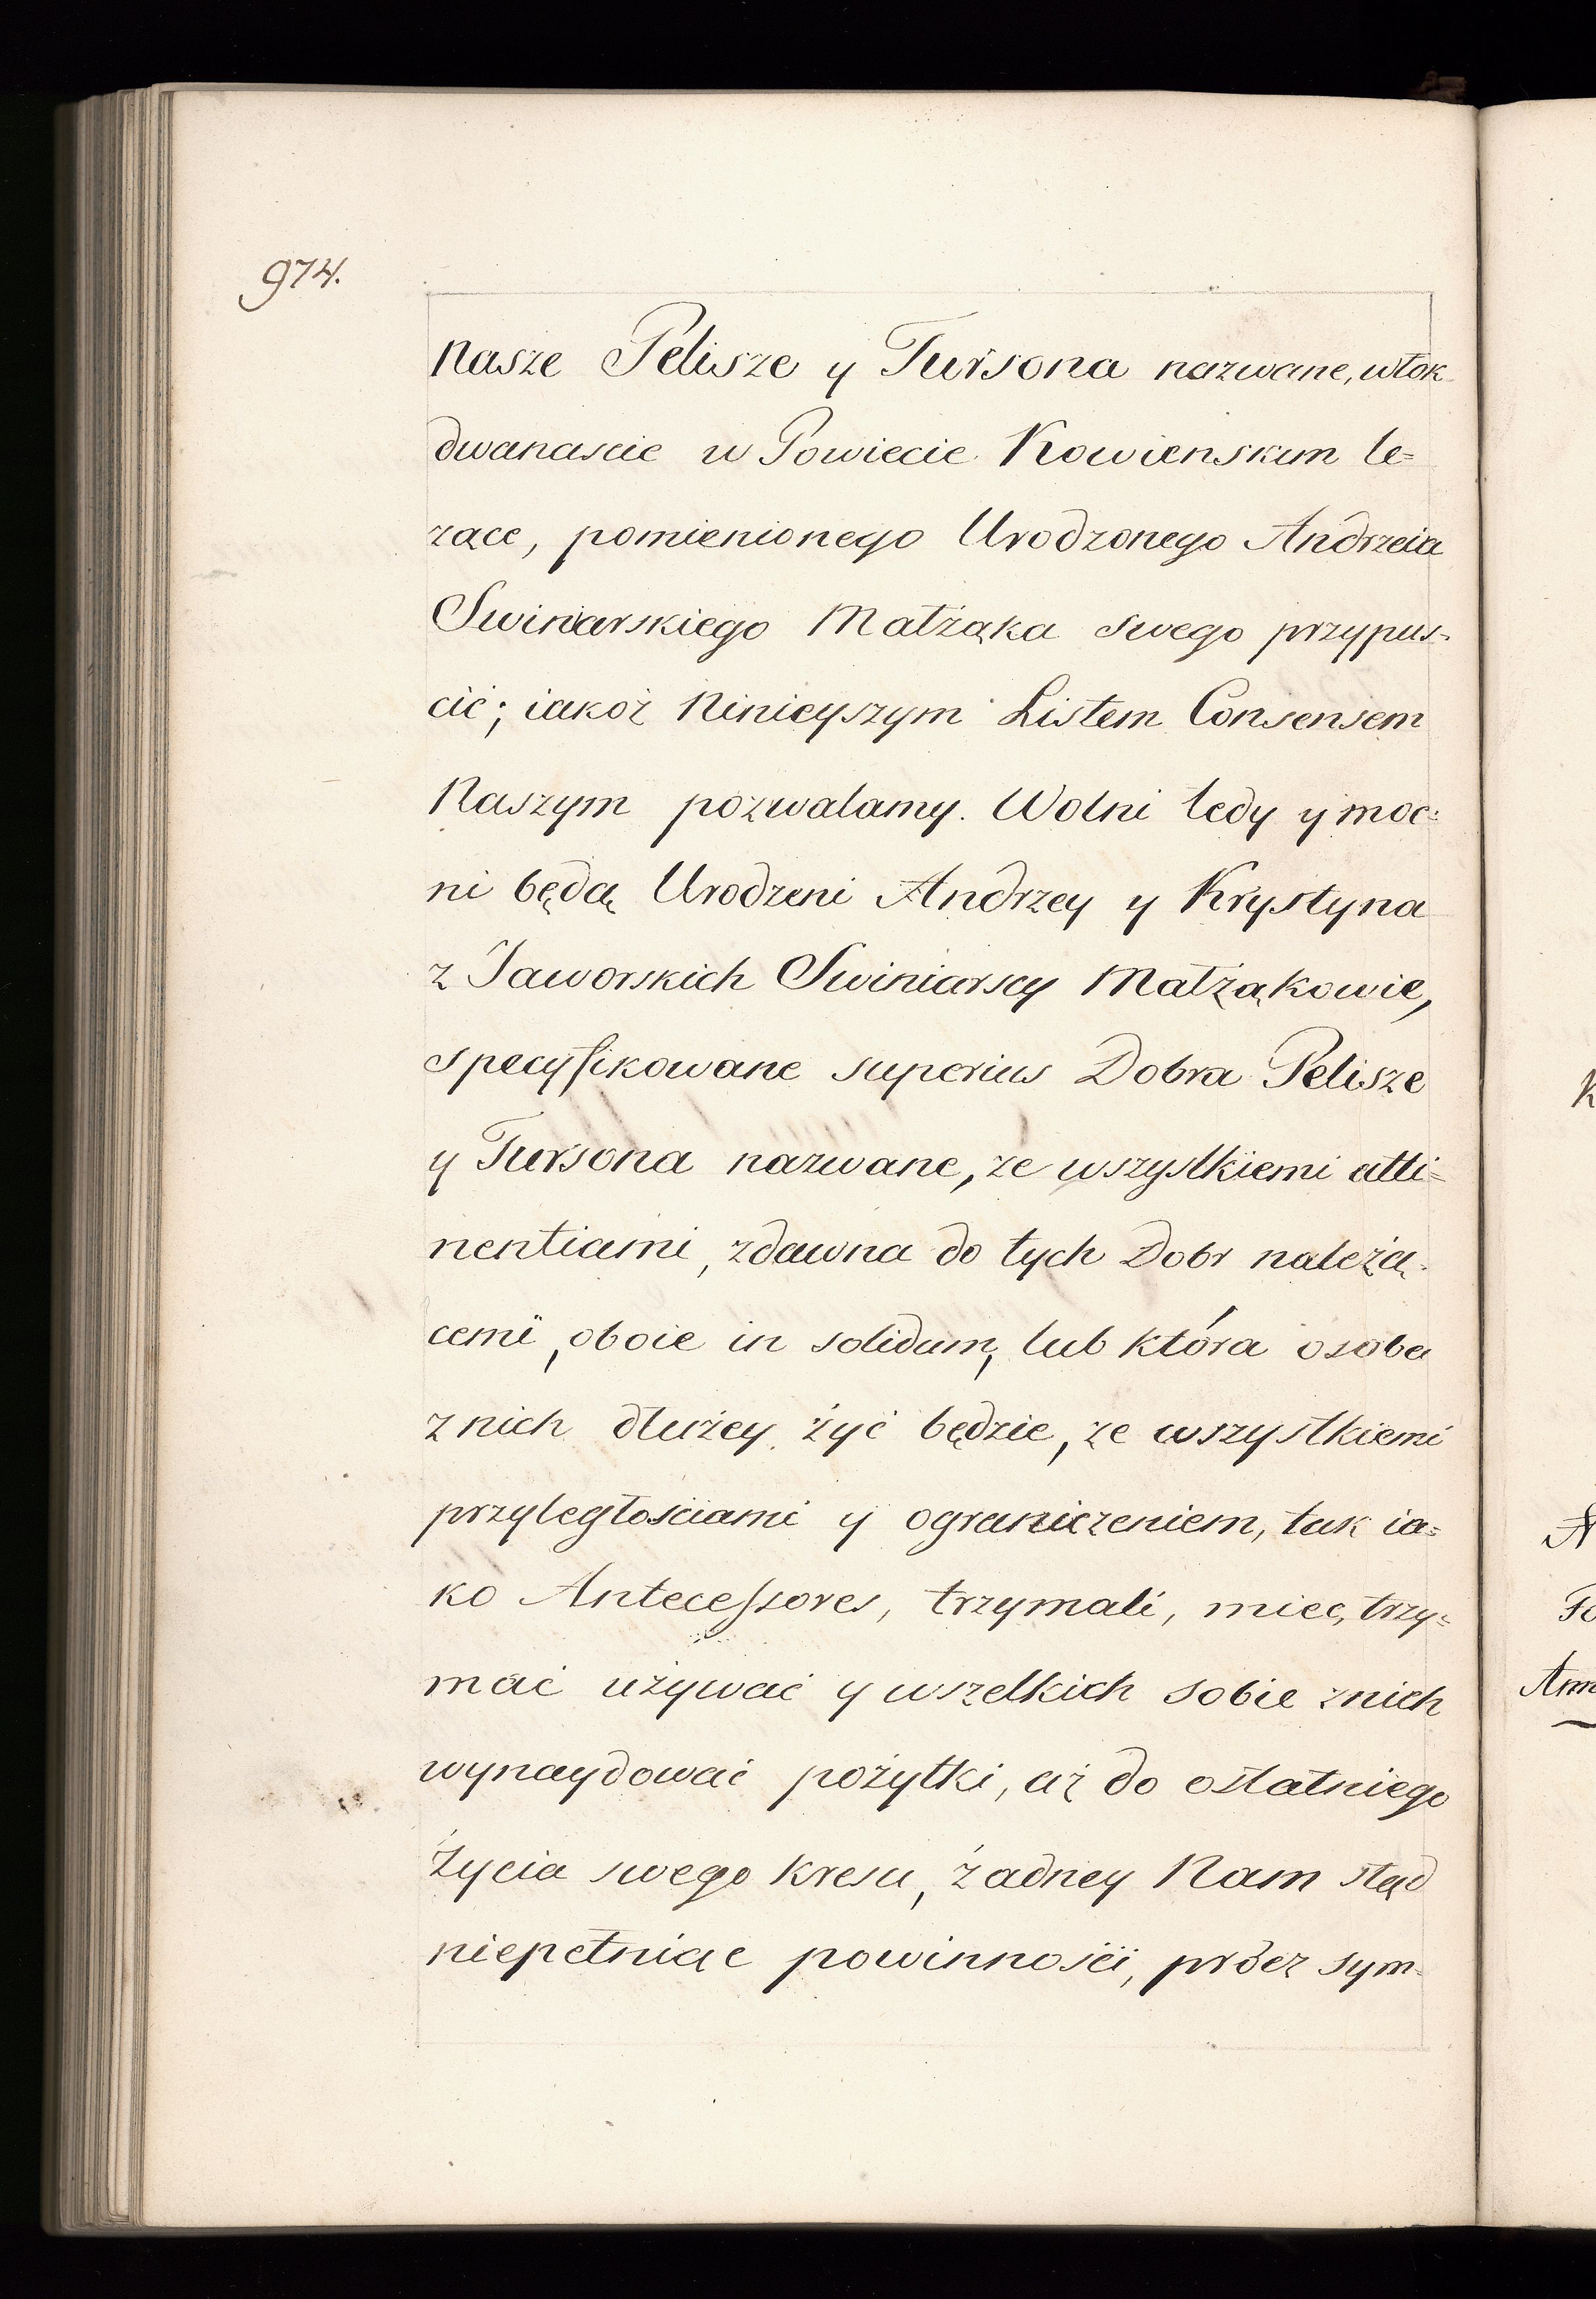 974.
Nasze Pelisze y Tursona nazwane, włok
dwanascie w Powiecie Kowienskim le=
zące, pomienionego Urodzonego Andrzeia
Swiniarskiego Małżąka swego przypus=
cić; iakoż Ninieyszym Listem Consensem
Naszym pozwalamy. Wolni tedy y moc=
ni będą Urodzeni Andrzey y Krystyna
z Jaworskich Swiniarscy Małżąkowie,
specyfikowane superius Dobra Pelisze
y Tursona nazwane, ze wszystkiemi atti=
nentiami, zdawna do tych Dobr należą=
cemi, oboie in solidum, lub która osoba
z nich dłużey żyć będzie, ze wszystkiemi
przyległościami y ograniczeniem, tak ia=
ko Antecessores, trzymali, miec, trzy=
mać używać y wszelkich sobie znich
wynaydować pożytki, aż do ostatniego
życia swego kresu, żadney Nam stąd
niepełniąc powinności, przez sym=